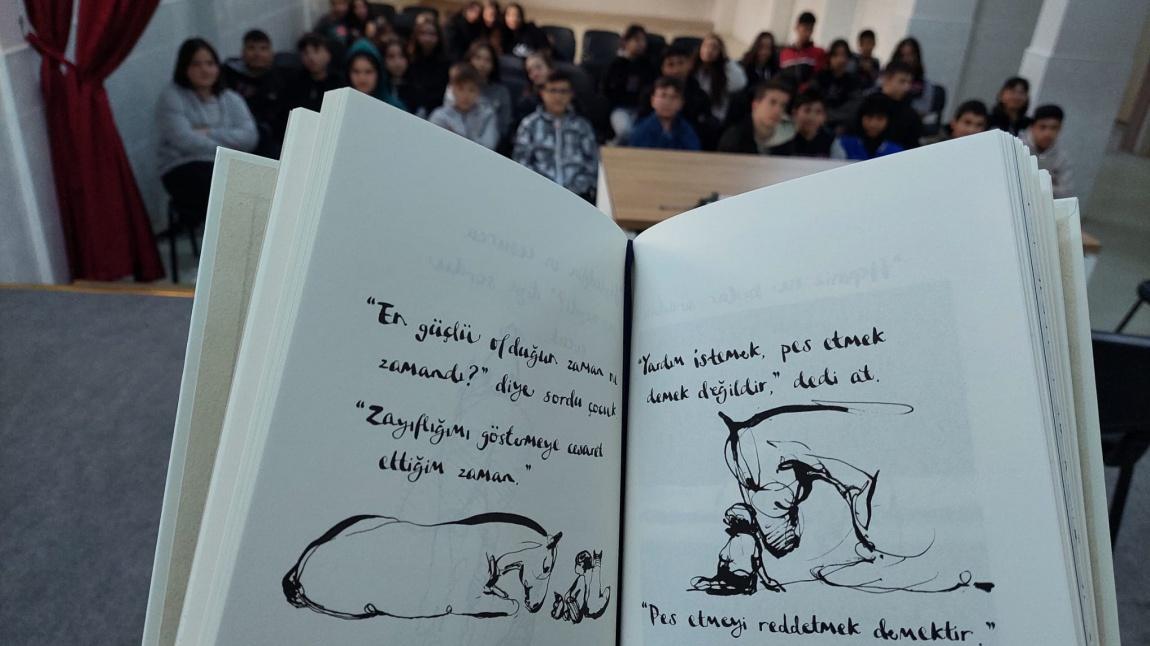 “En güçlü olduğun zaman ne
zamandı?” diye sordu çocuk
“Zayıflığımı göstermeye cesaret
ettiğim zaman.”
“Yardım istemek, pes etmek
demek değildir,” dedi at.
“Pes etmeyi reddetmek demektir.”